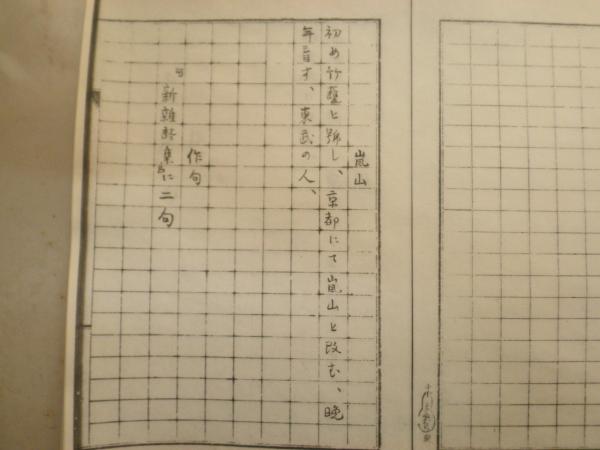 嵐山
初め竹護と號し、京都にて嵐山と改む、晩
年盲す、東武の人、
作句
新雑談集に二句